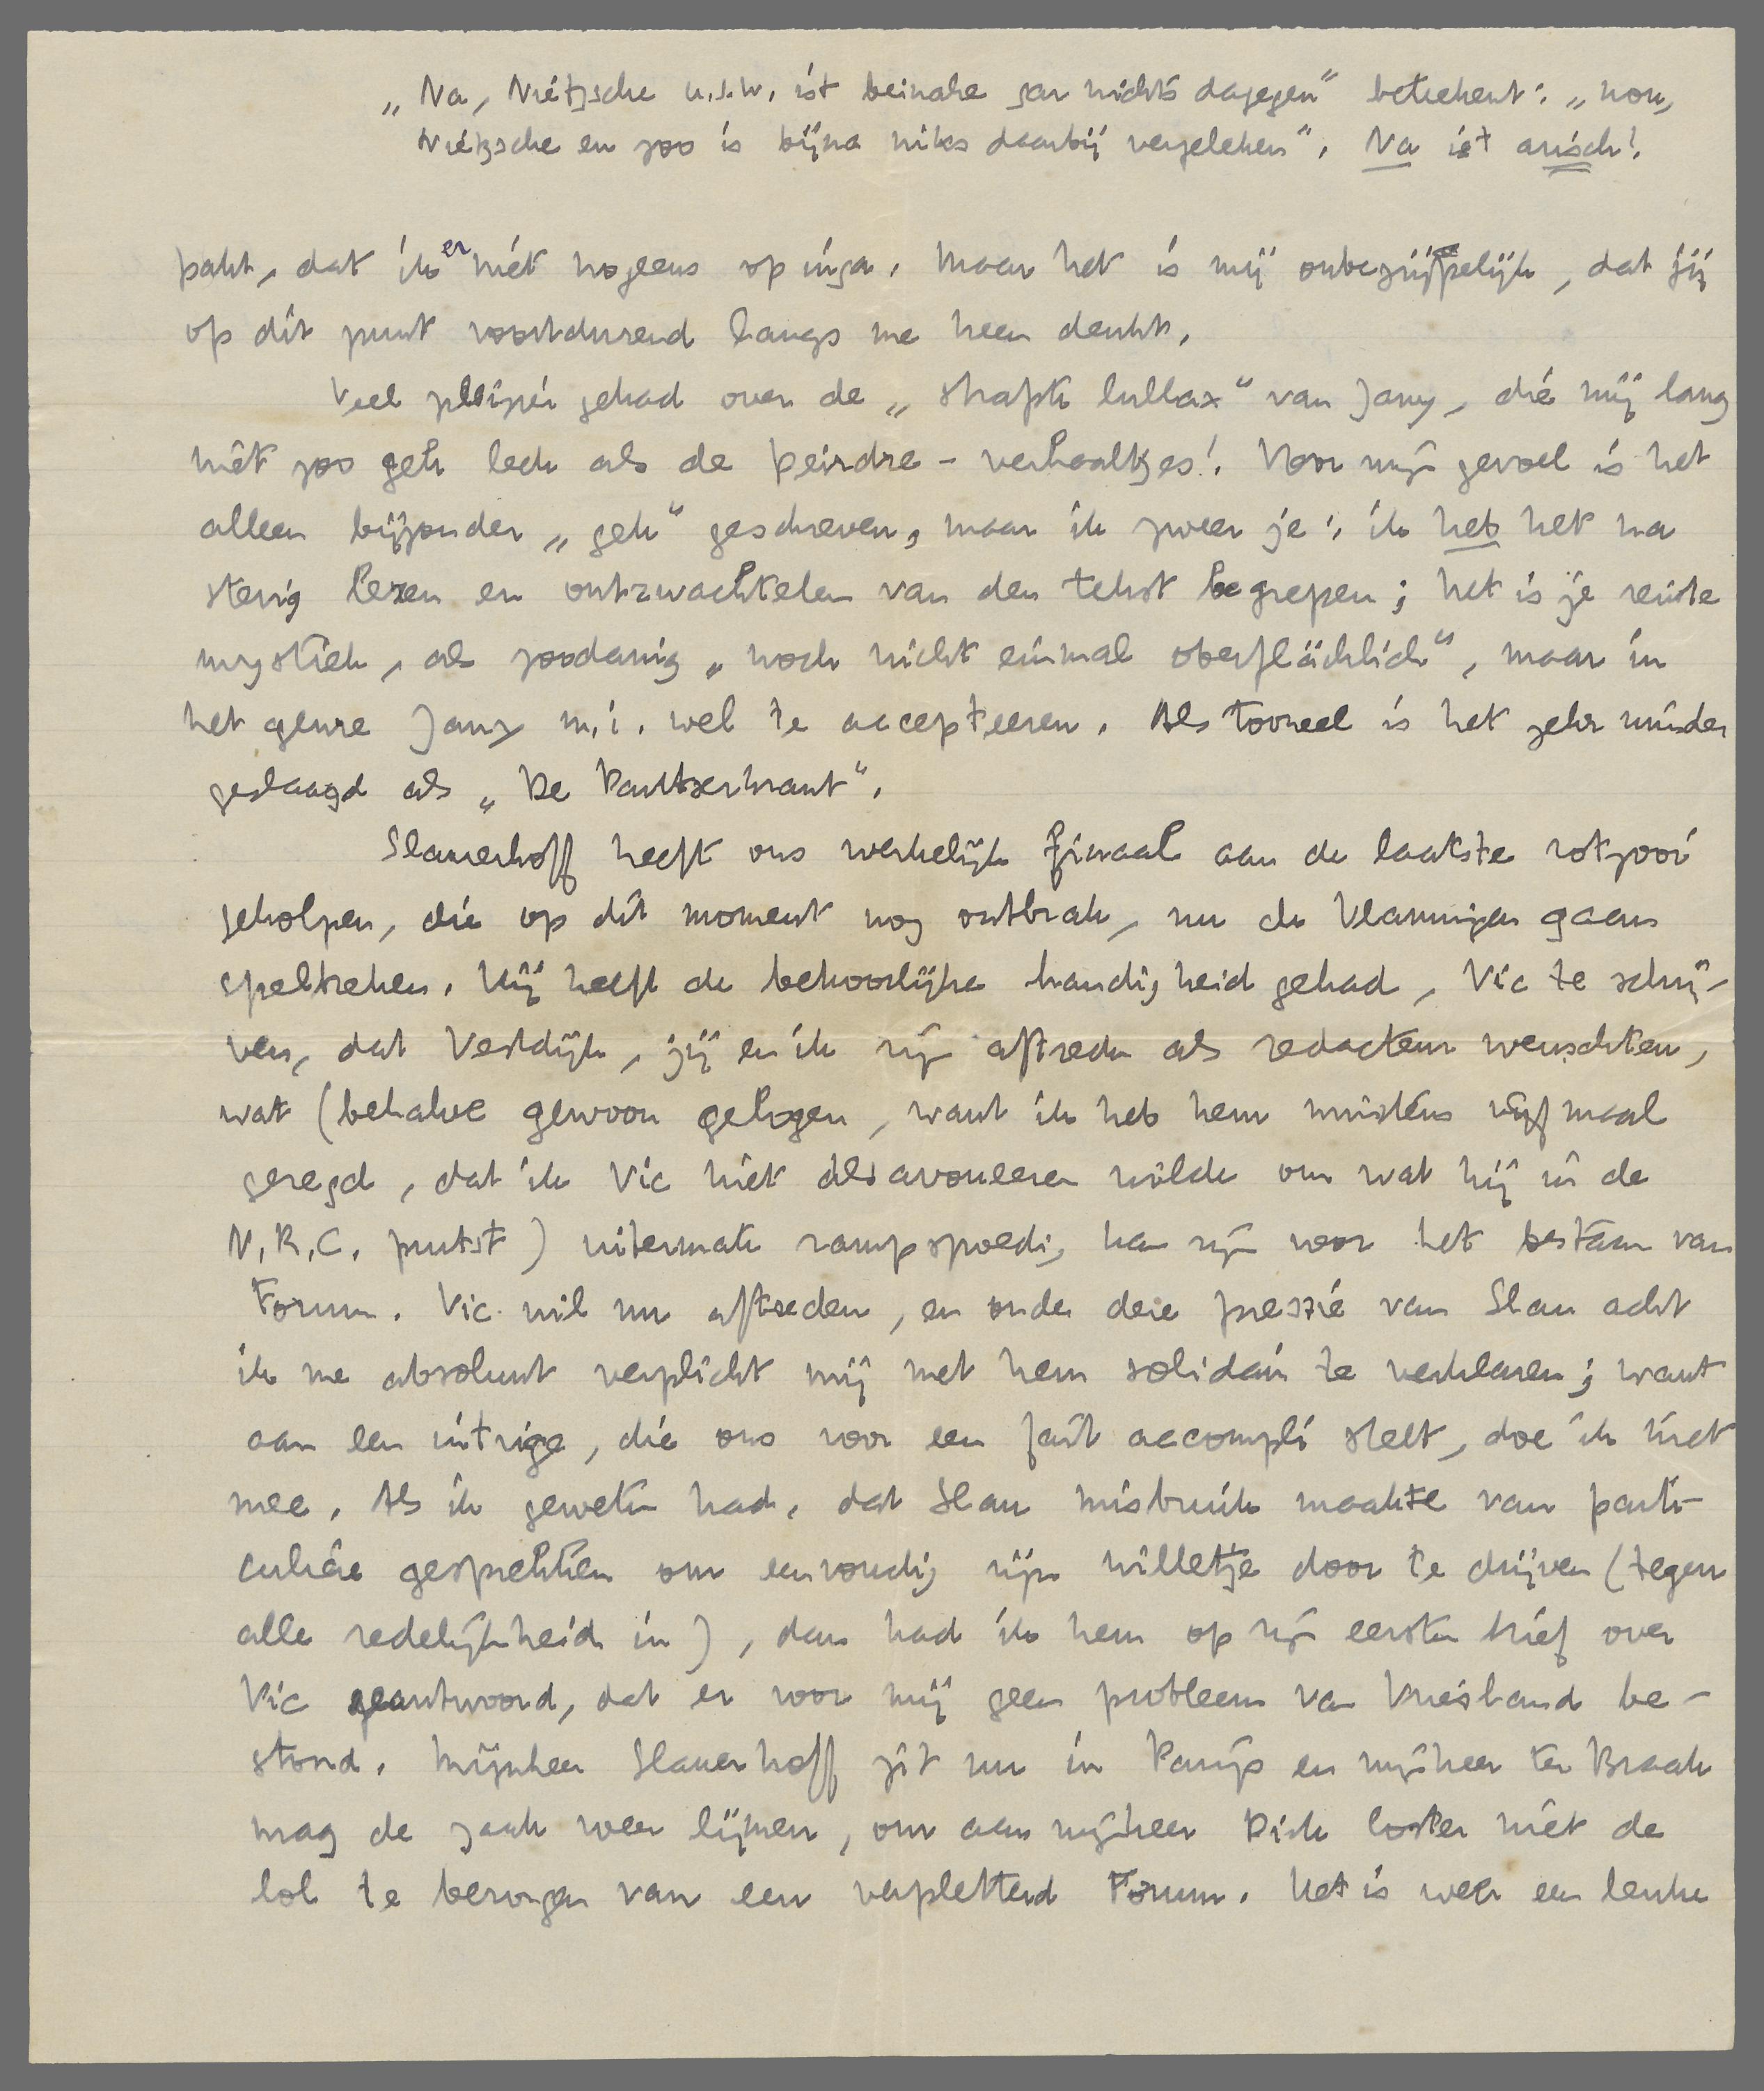 „Na, Nietzsche u.s.w. ist beinahe gar nichts dagegen" beteekent: „nou,
Nietzsche en zoo is bijna niks daarbij vergeleken". Na ist arisch!
pakt, dat ik er niet nogeens op inga. Maar het is mij onbegrijpelijk, dat jij
op dit punt voortdurend langs me heen denkt.
Veel plezier gehad over de „ van Jany, die mij lang
niet zoo gek leek als de Deirdre-verhaaltjes! Voor mijn gevoel is het
alleen bijzonder „gek" geschreven, maar ik zweer je: ik heb het na
stevig lezen en ontzwachtelen van den tekst begrepen; het is je reinste
mystiek, als zoodanig „noch nicht einmal oberflächlich", maar in
het genre Jany m.i. wel te accepteeren. Als tooneel is het zeker minder
geslaagd als „De Pantserkrant".
Slauerhoff heeft ons werkelijk finaal aan de laatste rotzooi
geholpen, die op dit moment nog ontbrak, nu de Vlamingen gaan
speltreken. Hij heeft de behoorlijke handigheid gehad, Vic te schrij-
ven, dat Vestdijk, jij en ik zijn aftreden als redacteur wenschten,
wat (behalve gewoon gelogen, want ik heb hem minstens vijf maal
gezegd, dat ik Vic niet desavoueeren wilde om wat hij in de
N.R.C. prutst) uitermate rampspoedig kan zijn voor het bestaan van
Forum. Vic wil nu aftreden, en onder deze pressie van Slau acht
ik me absoluut verplicht mij met hem solidair te verklaren; want
aan een intrige, die ons voor een fait accompli stelt, doe ik niet
mee. Als ik geweten had, dat Slau misbruik maakte van parti-
culiere gesprekken om eenvoudig zijn willetje door te drijven (tegen
alle redelijkheid in), dan had ik hem op zijn eersten brief over
Vic geantwoord, dat er voor mij geen probleem van Vriesland be-
stond. Mijnheer Slauerhoff zit nu in Parijs en mijnheer ter Braak
mag de zaak weer lijmen, om aan mijnheer Dick Coster niet de
lol te bezorgen van een verpletterd Forum. Het is weer een leuke